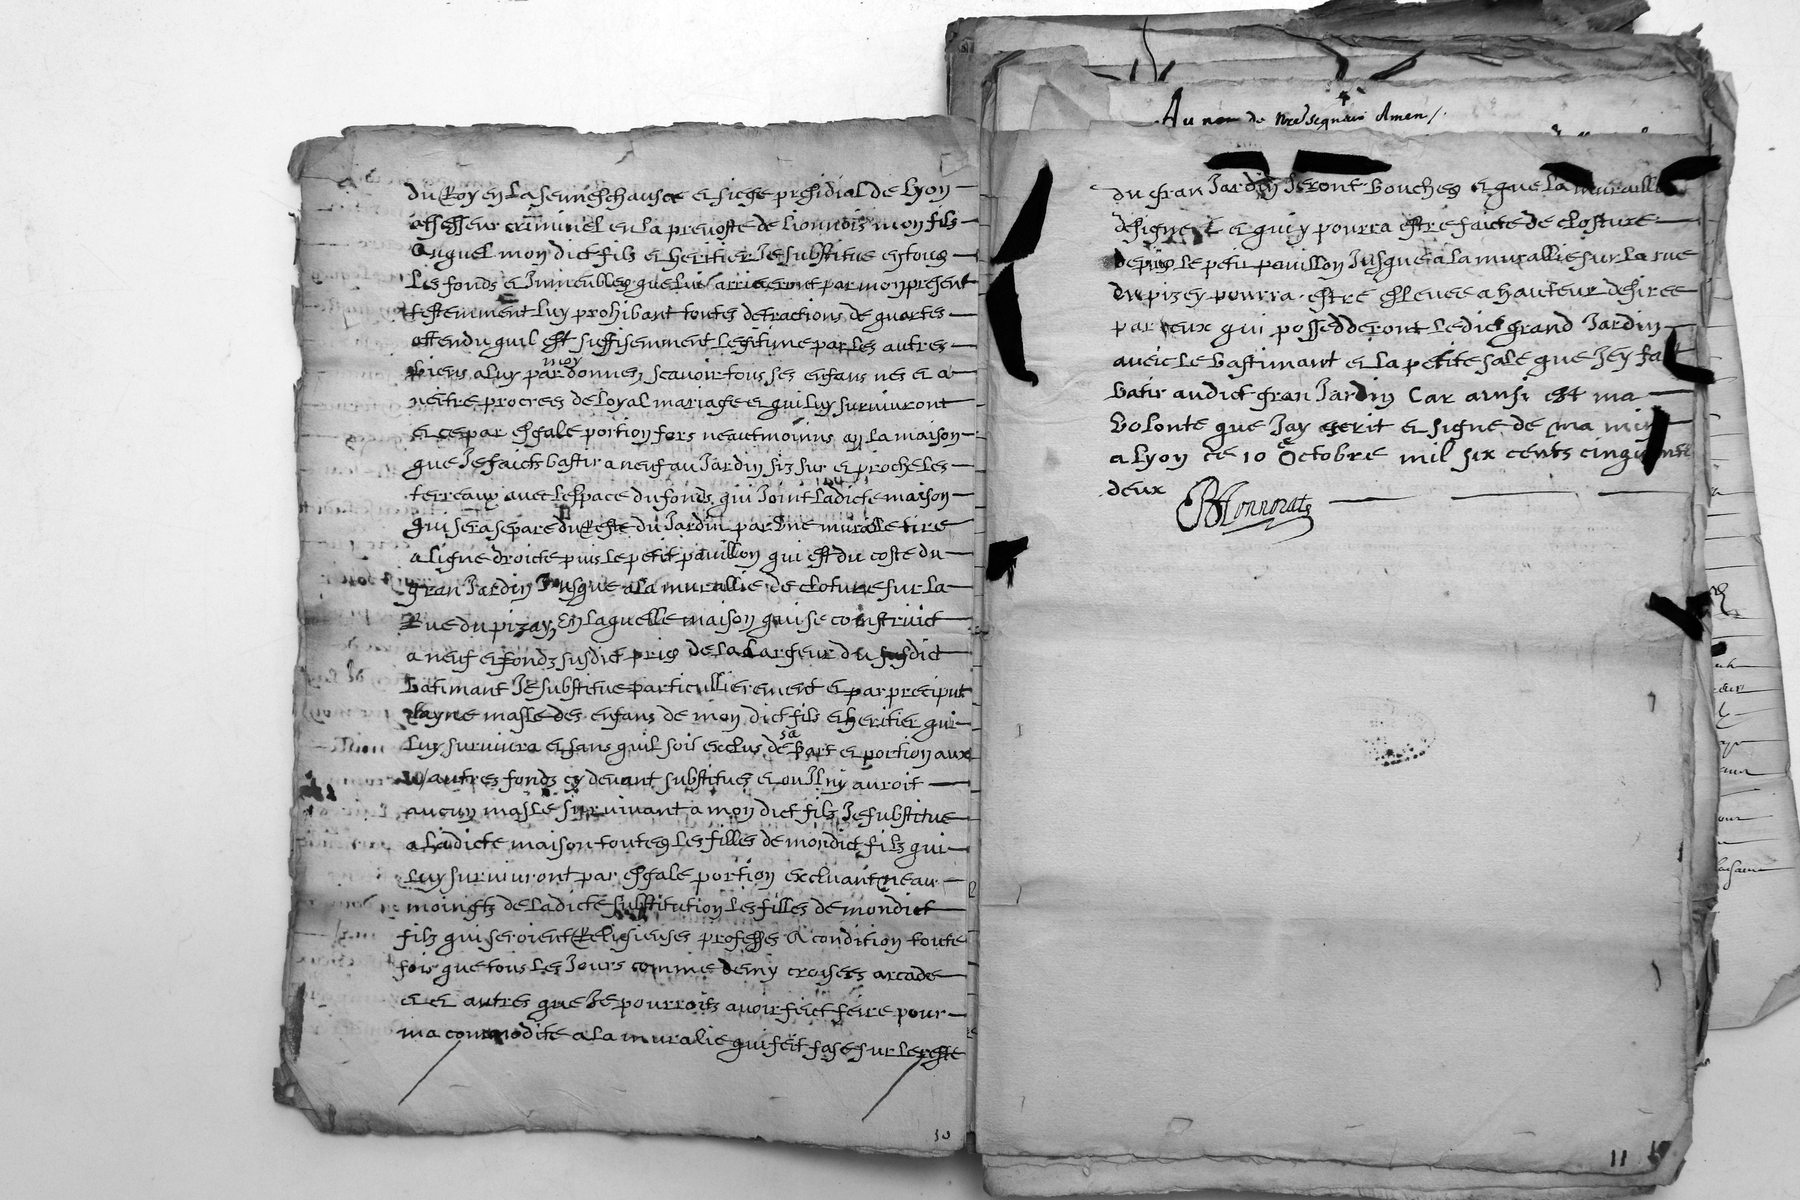 du Roy en la senneschausee et siege presidial de Lyon
assesseur criminel en la prevosté de lionnois mon fils
Auquel mon dict filz et heritier Je substitue en tous
les fonds et Immeubles que luy arriveront par mon present
testemment luy prohibant toutes detractions de quartes
attendu quil est suffisemment legitime par les autres
moy
biens a luy par donnes, scavoir tous ses enfans nes et a
neitre procrees de loyal mariage et qui luy survivront
et ce par esgale portion fors neautmoinus en la maison
que Je faicts bastir a neuf au Jardin siz sur et proche les
terreaux avec lespace du fonds qui Joint ladicte maison
qui sera separe du Reste du Jardin par une muralle tire
a ligne droicte puis le petit pavillon qui est du coste du
gran Jardin Jusque a la murallie de cloture sur la
Rue du pizay, En laquelle maison qui se construict
a neuf et fondz susdict pris de la Largeur du susdict
batimant Je substitue particullierement et par preciput
layne masle des enfans de mon dict filz et heritier qui
sa
luy survivra et sans quil sois exclus de part et portion aux
autres fondz cy devant substitues et ou Il ny auroit
aucun masle survivant a mon dict filz Je substitue
a ladicte maison toutes les filles de mondict filz qui
luy survivront par esgale portion excluant neau
moingtz de ladicte substitution les filles de mondict
filz qui seroient Religieuses professes A condition toute
fois que tous les Jours comme demy croisees arcade
et et autres que Je pourroits avoir feict feire pour
ma commodite a la muralie qui feit fase sur le reste
10
Au nom de nre segneur Amen /.
du gran Jardin seront bouches et que la muraille
designe et qui y pourra estre faicte de closture
depuis le petit pavillon Jusque a la murallie sur la rue
du pizey pourra estre eslevee a hauteur desiree
par ceux qui possedderont ledict grand Jardin
aveic le bastimant et la petite sale que Jey fait
batir audict gran Jardin Car ainsi est ma
volonte que Jay escrit et signe de ma min
a Lyon ce 10 e Octobre mil six cents cinquante
deux BHonnorat
11